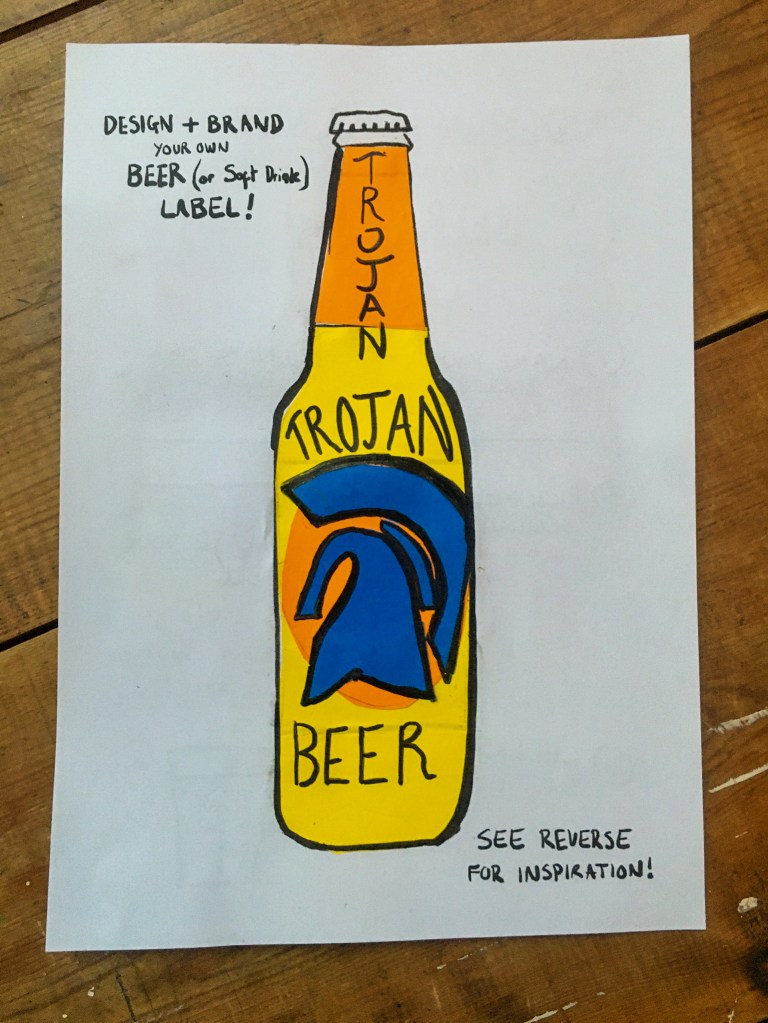 DESIGN + BRAND
YOUR OWN
BEER (or Soft Drink)
LABEL!
TROJAN
TROJAN
BEER
SEE REVERSE
FOR INSPIRATION!